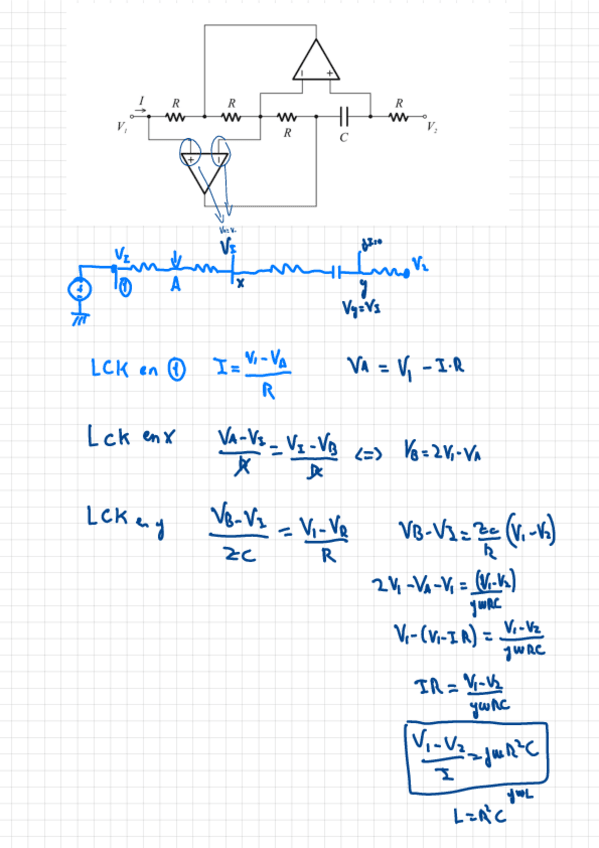 I R R R C R
V₁ V₂
- +
+ -
V₁=Vₓ
V_I V_I y I=0 V₂
① A x y
V_y=V_I
LCK en ① I = (V₁-V_A)/R V_A = V₁ - I·R
LCK en x (V_A-V_I)/R = (V_I-V_B)/R <=> V_B = 2V₁-V_A
LCK en y (V_B-V_I)/ZC = (V₁-V_R)/R V_B-V_I = Zc/R (V₁-V₂)
2V₁-V_A-V₁ = (V₁-V₂)/jωRC
V₁-(V₁-IR) = (V₁-V₂)/jωRC
IR = (V₁-V₂)/jωRC
(V₁-V₂)/I = jωR²C
jωL
L=R²C